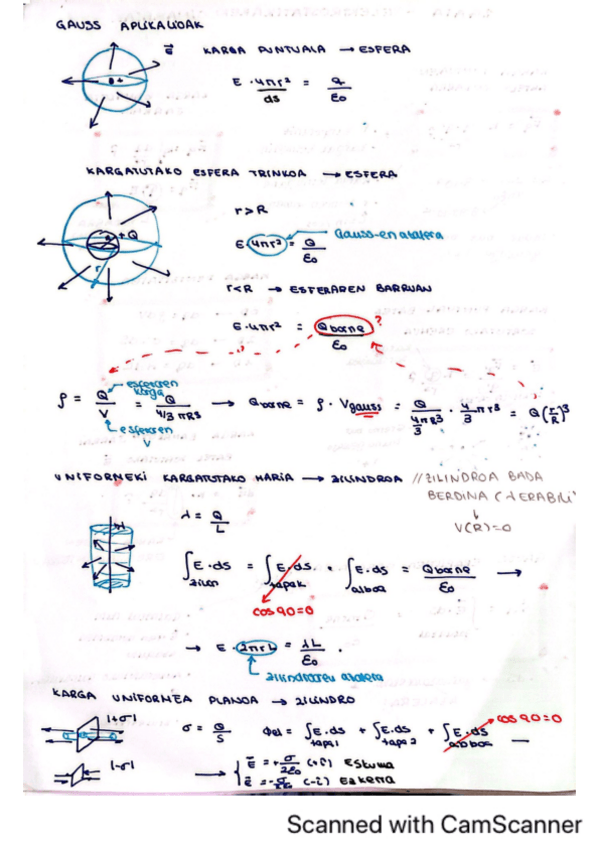 GAUSS APLIKAZIOAK
E⃗
KARGA PUNTUALA → ESFERA
E · 4πr² / ds = Q / ε₀
KARGATUTAKO ESFERA TRINKOA → ESFERA
r > R
+Q
E · 4πr² = Q / ε₀ Gauss-en azalera
r
r < R → ESFERAREN BARRUAN
E · 4πr² = Q barne / ε₀ ?
esferaren karga
ρ = Q / V = Q / 4/3 πR³ → Q barne = ρ · V gauss = Q / 4πR³/3 · 4/3 πr³ = Q (r/R)³
esferaren V
UNIFORMEKI KARGATUTAKO HARIA → ZILINDROA // ZILINDROA BADA
BERDINA (λ ERABILI
↓
V(R)=0
λ = Q / L
∫ E · ds zilin = ∫ E · ds tapak + ∫ E · ds alboa = Q barne / ε₀ →
cos 90=0
→ E · 2πrL = λL / ε₀ .
zilindroaren azalera
KARGA UNIFORMEA PLANOA → ZILINDRO
|+σ| σ = Q / S Φel = ∫ E · ds tapa 1 + ∫ E · ds tapa 2 + ∫ E · ds alboa cos 90=0 —
|-σ| → { E⃗ = + σ / 2ε₀ (+i)
Scanned with CamScanner